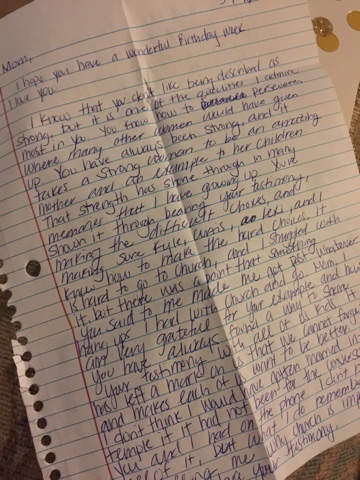 Mom,
I hope you have a wonderful Birthday week.
I love you.
I know that you don't like being described as
strong, but it is one of the qualities I admire
most in you. You know how to persevere,
where many other women would have given
up. You have always been strong, and it
takes a strong woman to be an amazing
mother and an example to her children
That strength has shone through in many
memories that I have growing up. You've
shown it through bearing your testimony,
making the difficult choices, and
making sure Kyle, and I
knew how to make the hard choices. It
is hard to go to church, and I struggled with
it, but there was a point that something
you said to me made me get past whatever
hang ups I had with church and go. Mom, I
am very grateful for your example and how
you have always found a way to share
your testimony with all of us kids. It
has left a mark on us that we cannot forget
and makes each of us want to be better. I
don't think I would have gotten married in the
temple if it had not been for the
you and I had on the phone. I don't
of it, but what I do remember
me why church is
your testimony.